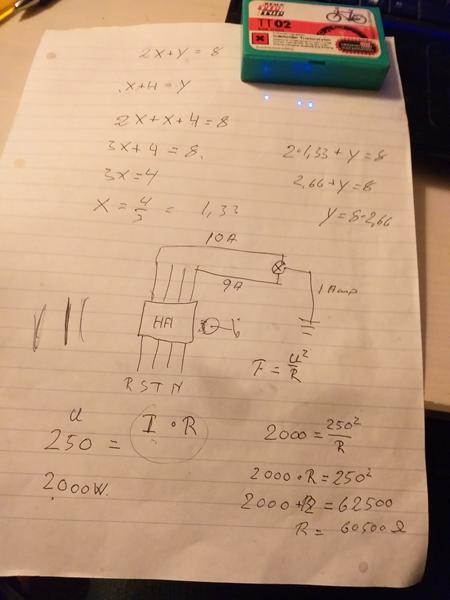 TIP TOP
TT 02
2x+y = 8
x+4 = y
2x+x+4 = 8
3x+4 = 8
3x=4
x = 4/3 = 1,33
2•1,33 + y = 8
2,66+y = 8
y = 8-2,66
10A
9A
1 Amp
HA
R S T N
F = u²/R
u
250 = I • R
2000W.
2000 = 250²/R
2000 • R = 250²
2000 + R = 62500
R = 60500 Ω